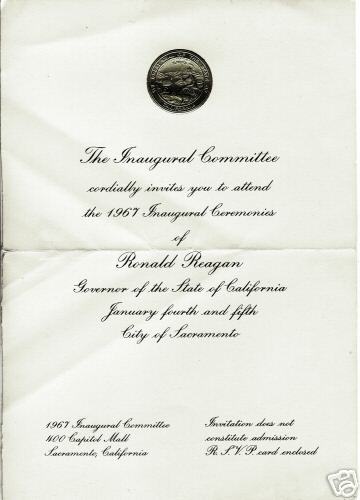 The Inaugural Committee
cordially invites you to attend
the 1967 Inaugural Ceremonies
of
Ronald Reagan
Governor of the State of California
January fourth and fifth
City of Sacramento
1967 Inaugural Committee
400 Capitol Mall
Sacramento, California
Invitation does not
constitute admission
R. S. V. P. card enclosed